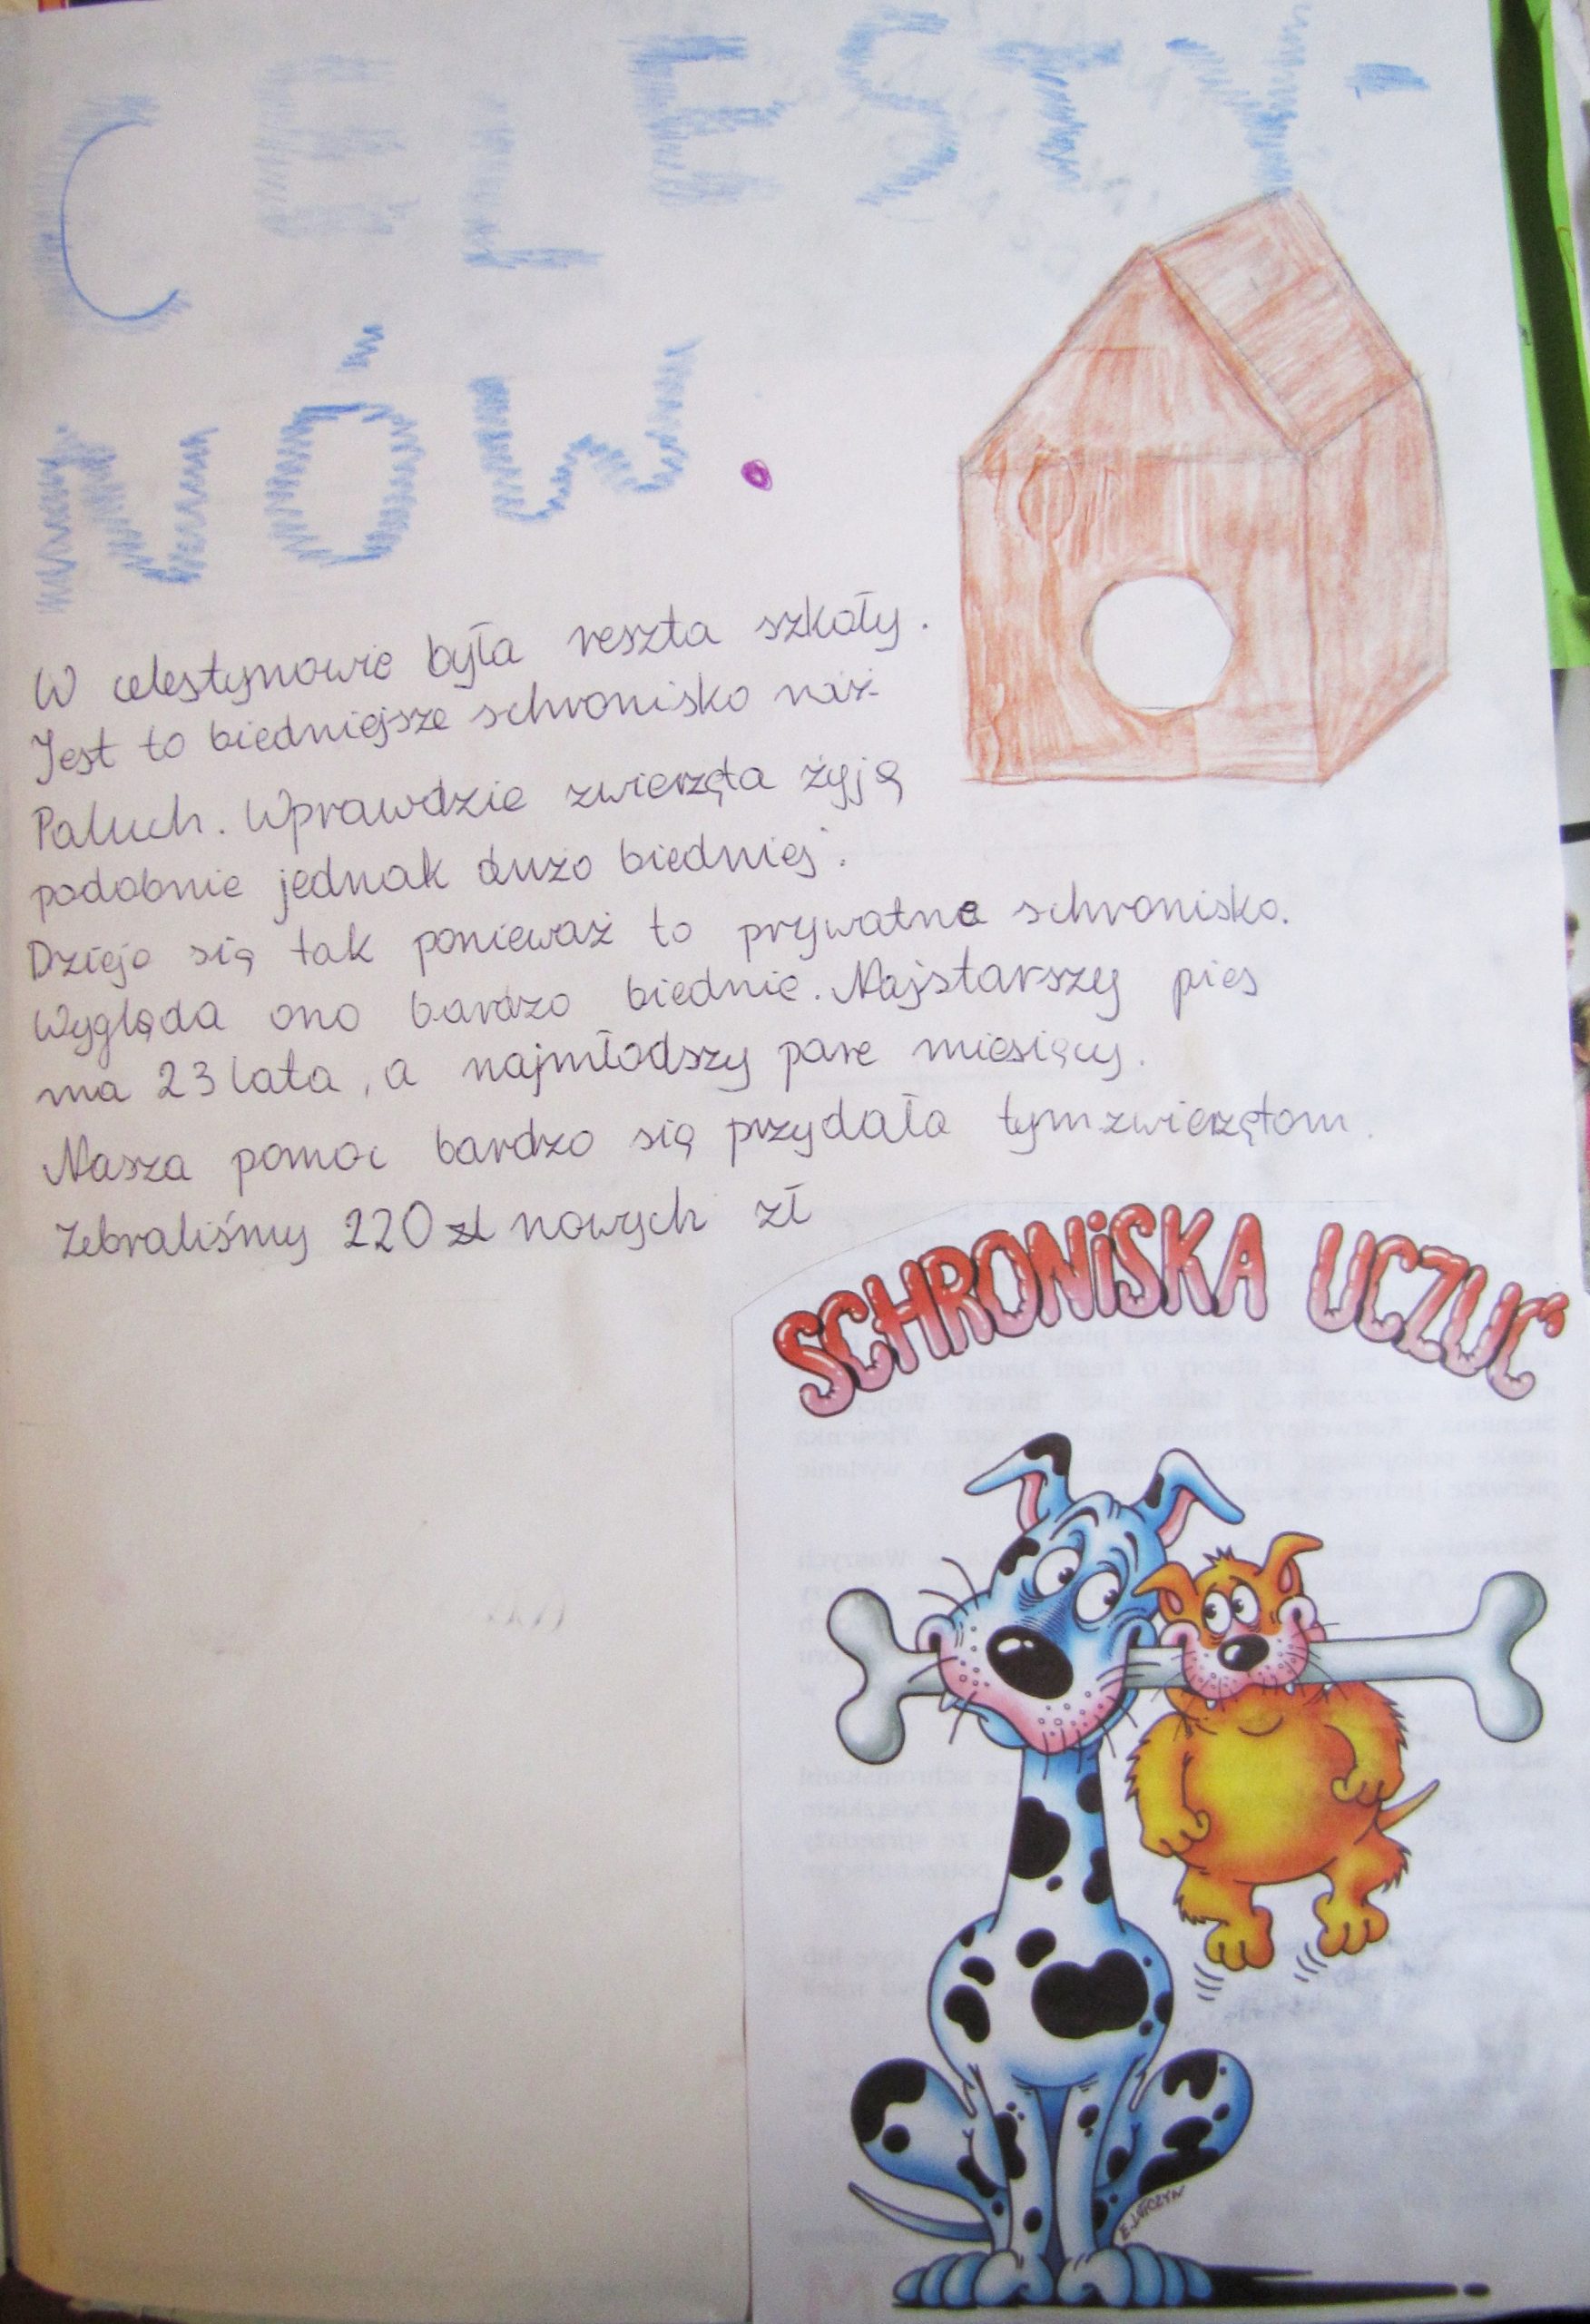 CELESTY-
NÓW.
W celestynowie była reszta szkoły.
Jest to biedniejsze schronisko niż
Paluch. Wprawdzie zwierzęta żyją
podobnie jednak dużo biedniej.
Dzieje się tak ponieważ to prywatne schronisko.
Wygląda ono bardzo biednie. Najstarszy pies
ma 23 lata, a najmłodszy pare miesięcy.
Nasza pomoc bardzo się przydała tym zwierzętom.
Zebraliśmy 220 zł nowych zł
SCHRONISKA UCZUĆ